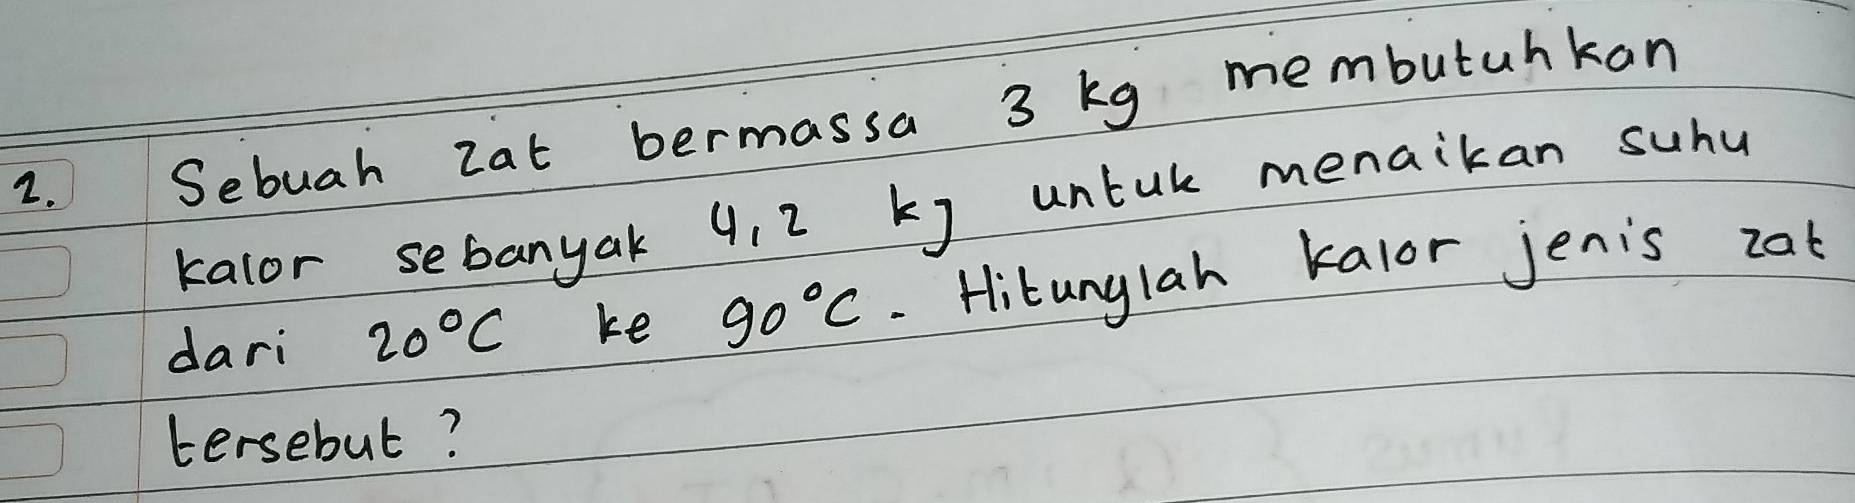 2. Sebuah zat bermassa 3 kg membutuhkan
kalor sebanyak 4,2 kJ untuk menaikan suhu
dari 20°C ke 90°C. Hitunglah kalor jenis zat
tersebut?